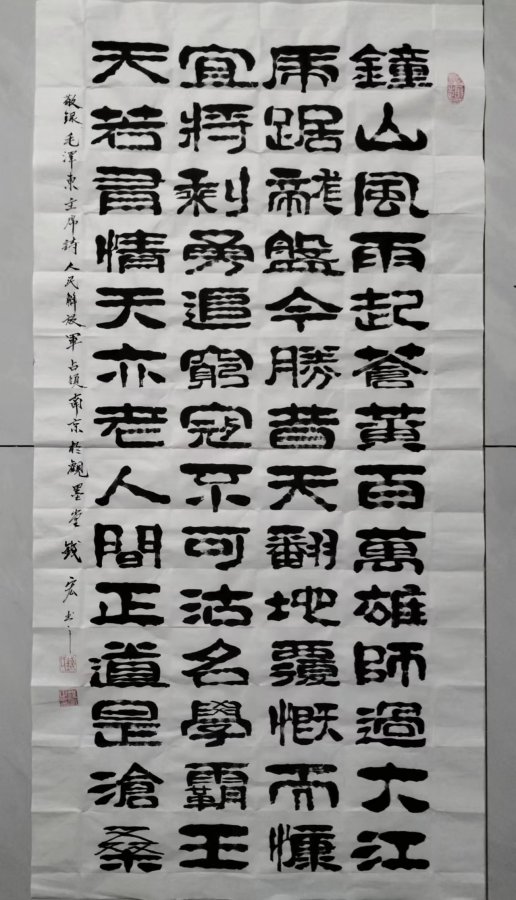 鐘山風雨起蒼黃百萬雄師過大江
虎踞龍盤今勝昔天翻地覆慨而慷
宜將剩勇追窮寇不可沽名學霸王
天若有情天亦老人間正道是滄桑
敬录毛澤東主席詩人民解放軍占領南京於觀墨堂錢宏书